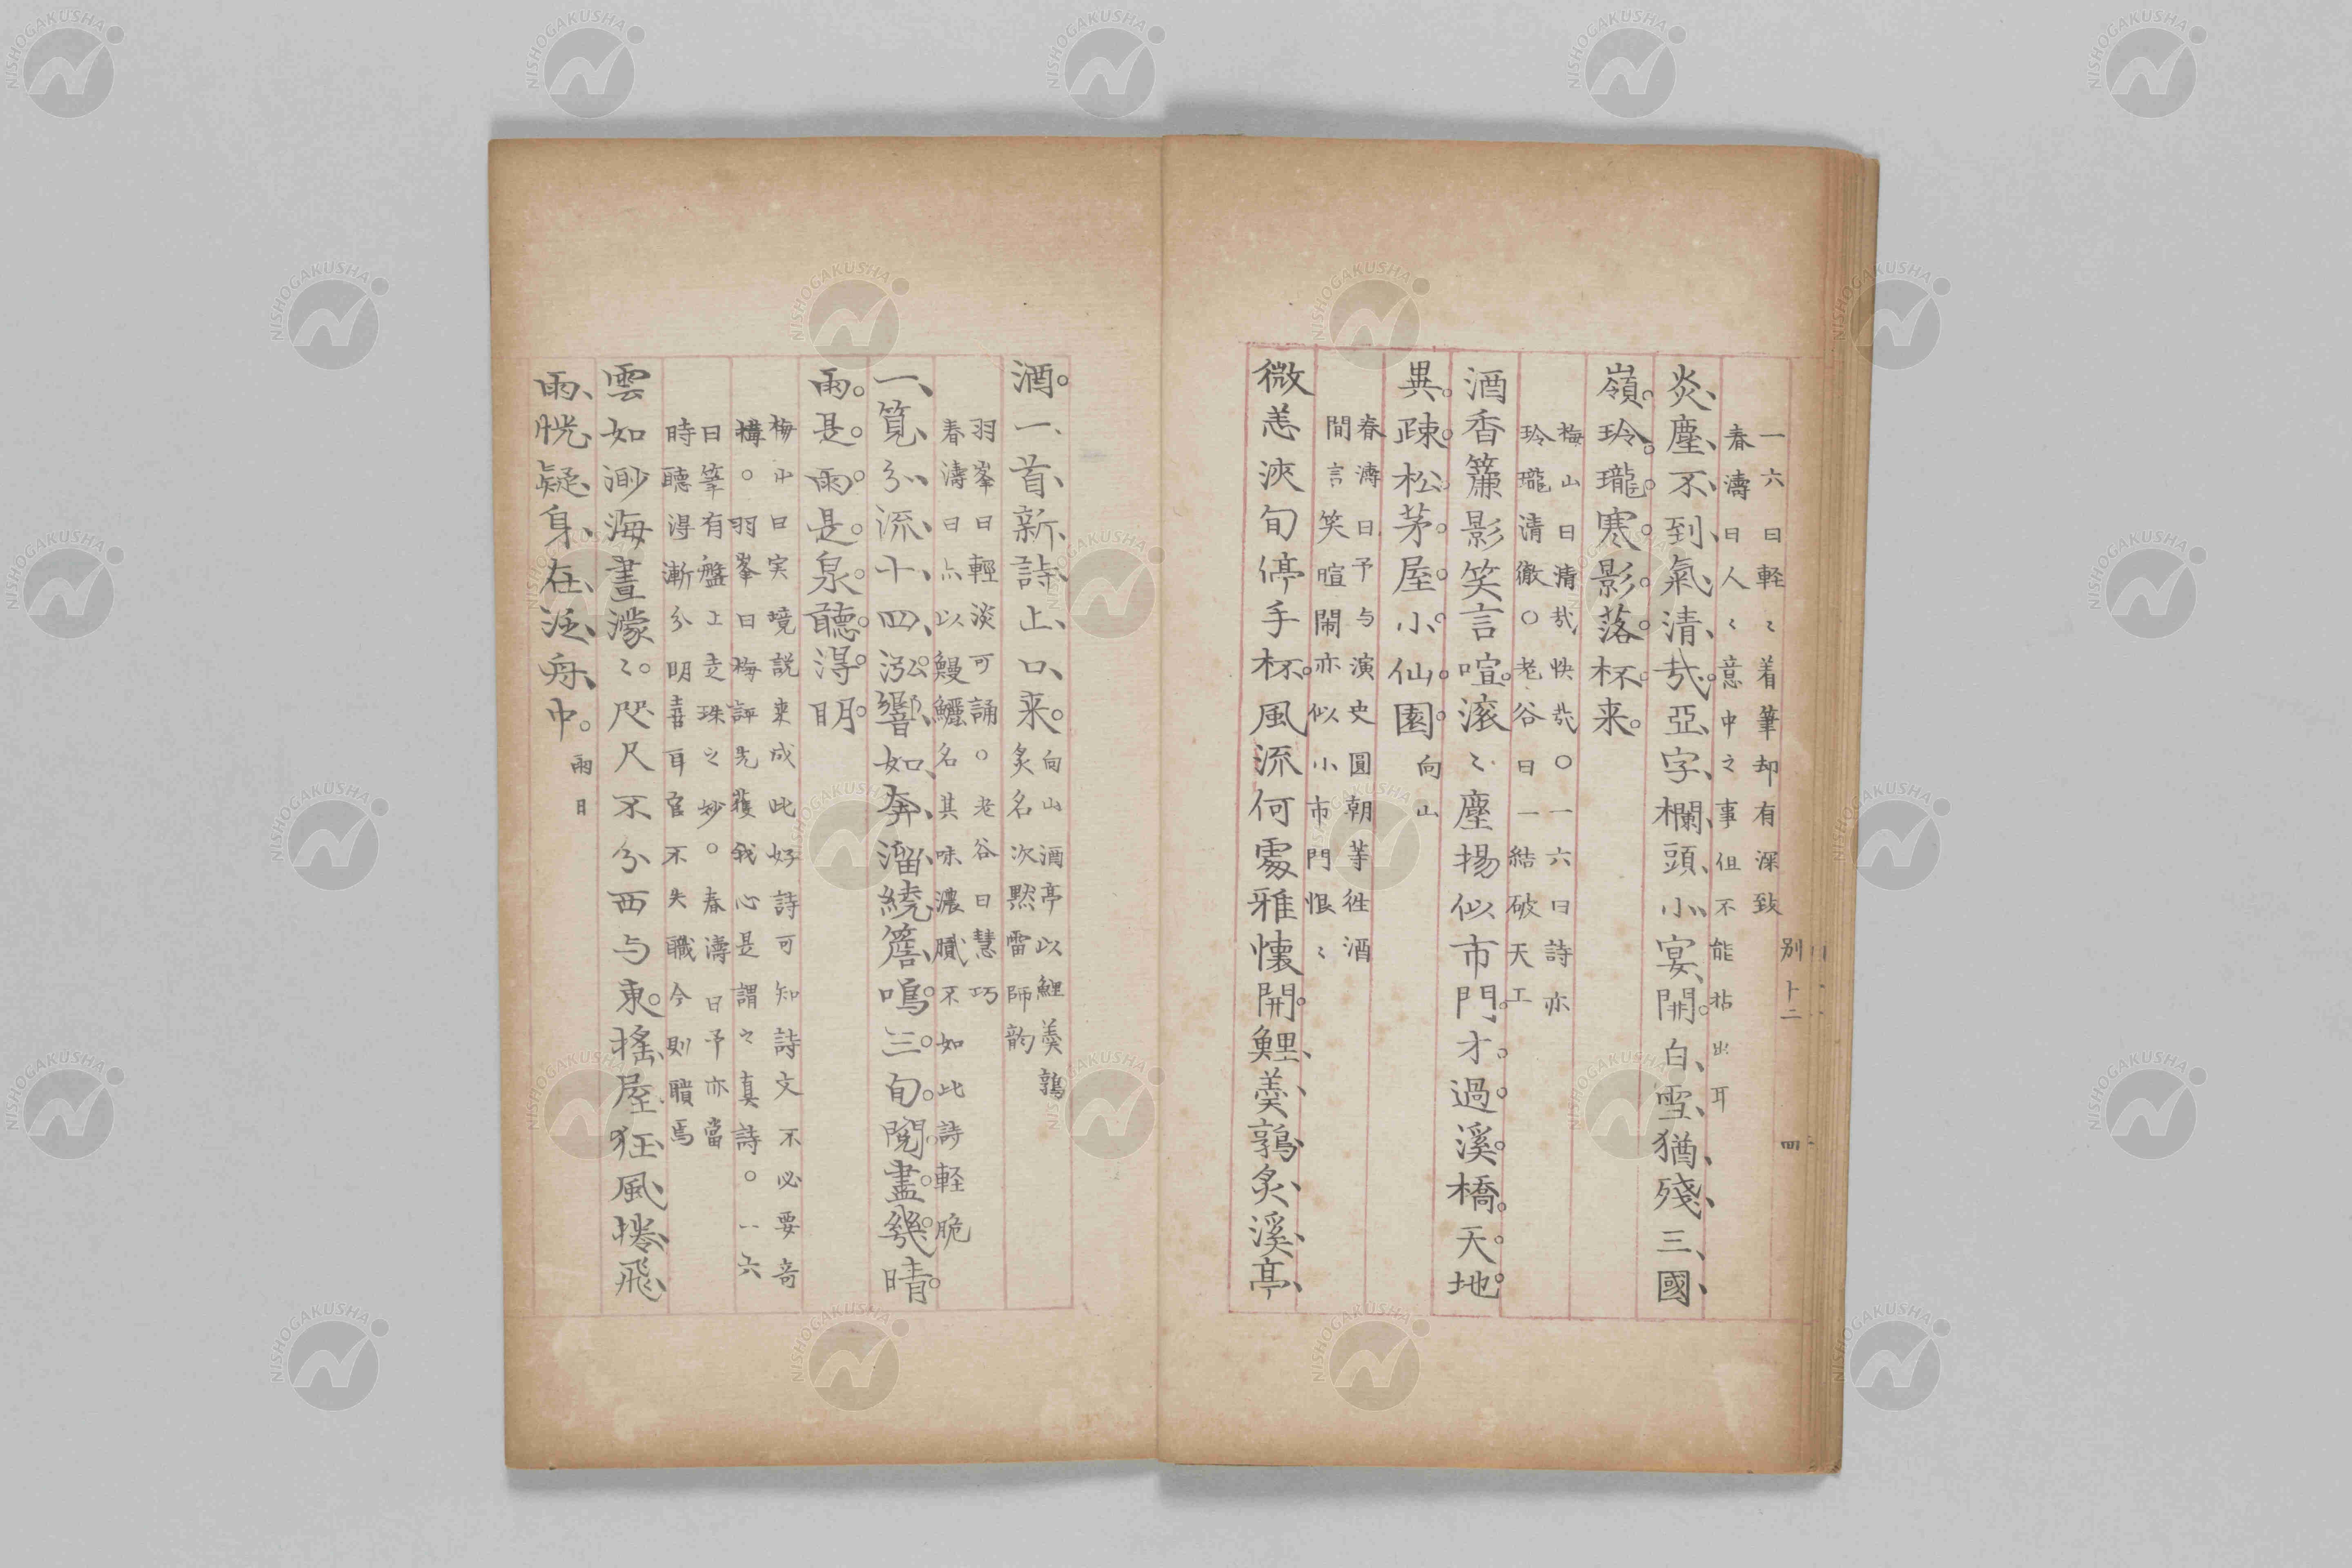 一六曰軽〻着筆却有深致
春濤曰人〻意中之事但不能拈出耳
炎塵不到氣清哉亞字欄頭小宴開白雪猶殘三國
嶺玲瓏寒影落杯来
梅山曰清哉快哉〇一六曰詩亦
玲瓏清徹〇老谷曰一結破天工
酒香簾影笑言喧滚〻塵揚似市門才過溪橋天地
異疎松茅屋小仙園 向山
春濤曰予与演史圓朝等往酒
間言笑喧鬧亦似小市門恨〻
微恙浹旬停手杯風流何處雅懐開鯉羹鶉炙溪亭
酒一首新詩上口来 向山酒亭以鯉羹鶉
炙名次黙雷師韵
羽峯曰輕淡可誦〇老谷曰慧巧
春濤曰亦以鰻鱺名其味濃膩不如此詩軽脆
一筧分流十四泓響如奔溜繞簷鳴三旬閲盡幾晴
雨是雨是泉聽得明
梅山曰実境説来成此好詩可知詩文不必要奇
構〇羽峯曰梅評先獲我心是謂之真詩〇一六
曰筆有盤上走珠之妙〇春濤曰予亦當
時聽得漸分明喜耳官不失職今則聵焉
雲如渺海晝濛〻咫尺不分西与東搖屋狂風捲飛
雨恍疑身在泛舟中 雨日
別十二
四
NISHOGAKUSHA